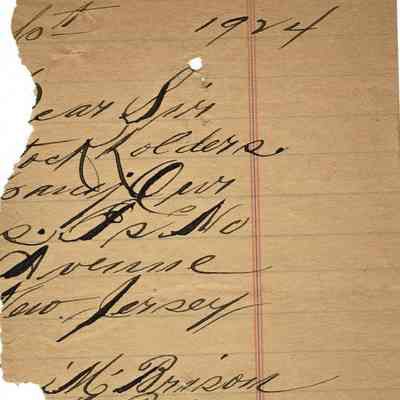 10th 1924
Dear Sir
tock holders.
pany. Our
s. Is No
Avenue
New. Jersey
M. Brinson